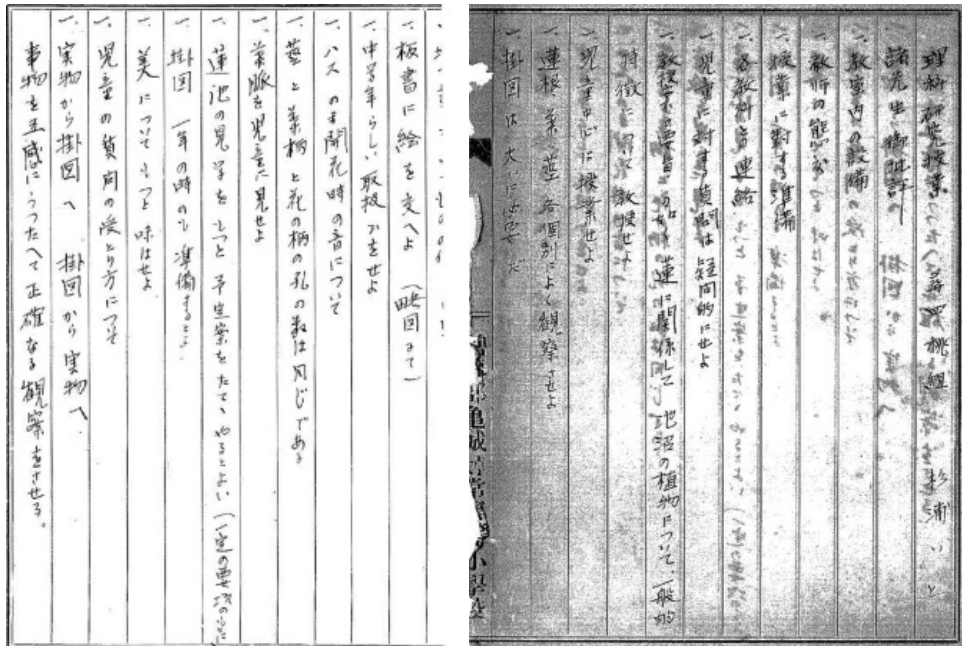 理科研究授業 尋四桃組 杉浦いと
諸先生御批評
一、教室内の設備
一、教師の態度
一、授業に對する準備
一、各教科の連絡
一、児童に対する質問は疑問的にせよ
一、教授案に要旨 蓮に関係して 池沼の植物について、一般的
特徴に 教授せよ
一、児童中心に授業せよ
一、蓮根、葉、茎 各個別によく観察させよ
一、掛図は大いに必要だ
亀城尋常高等小學校
一、板書に絵を交へよ (略図にて)
一、中学年らしい取扱いをせよ
一、ハスの開花時の音について
一、茎と葉柄と花の柄の孔の数は同じである
一、葉脈を児童に見せよ
一、蓮池の見学をもっと予定案をたてゝやるとよい (一定の要項の
一、掛図 一年の時のも準備すると
一、美についてもっと味はせよ
一、児童の質問の受とり方について
一、実物から掛図へ 掛図から実物へ
事物を五感にうったへて正確なる観察をさせる。